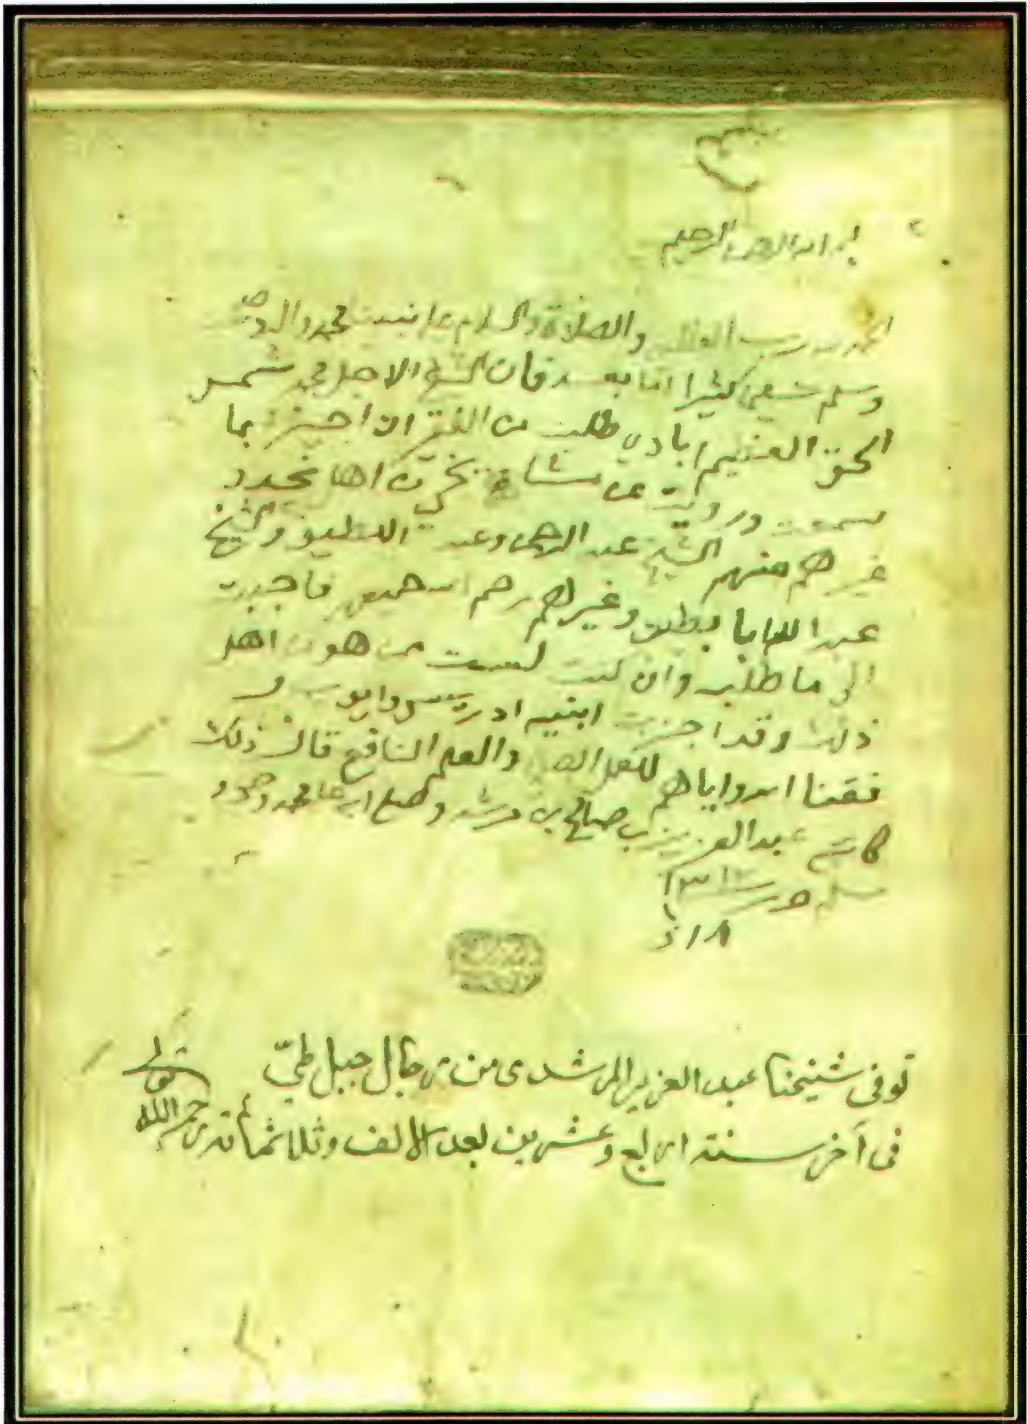 بسم الله الرحمن الرحيم
الحمد لله رب العالمين والصلاة والسلام على نبينا محمد وآله وصحبه
وسلم تسليما كثيرا اما بعد فان الشيخ الاجل محمد شمس
الحق العظيم ابادي طلب من الفقير ان اجيزه بما
سمعت ورويت عن مشايخ نجد
غيرهم منهم الشيخ عبد الرحمن وعبد اللطيف والشيخ
عبد الله ابا بطين وغيرهم رحمهم الله جميعهم فاجبت
الى ما طلب وان كنت لست من هو من اهل
ذلك وقد اجزت ابنيه ادريس وايوب و
فقنا الله واياهم للعمل الصالح والعلم النافع قال ذلك
كاتبه عبد العزيز بن صالح بن مرشد وصلى الله على محمد وصحبه و
سلم حرر ١٣١٢
١٨ ذ
توفى شيخنا عبد العزيز المرشدى من رجال جبل طيّ
فى آخر سنة اربع وعشرين بعد الالف وثلاثمائة رحمه الله تعالى